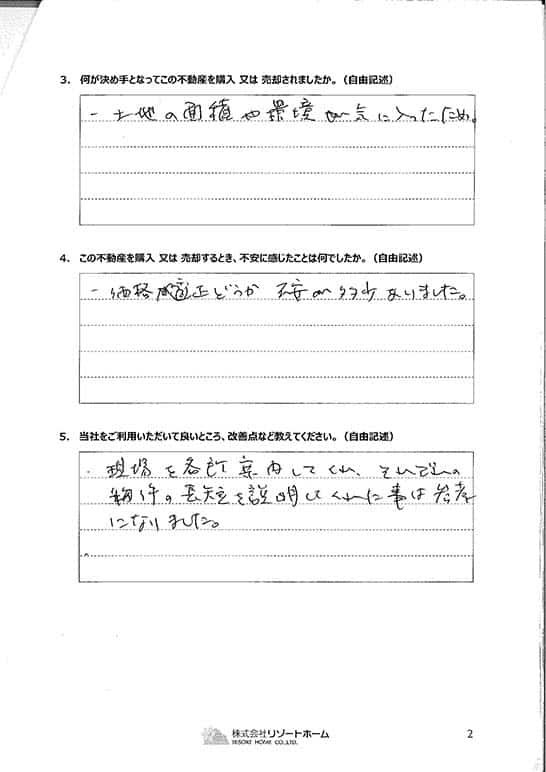 3. 何が決め手となってこの不動産を購入 又は 売却されましたか。（自由記述）
- 土地の面積や環境が気に入ったため。
4. この不動産を購入 又は 売却するとき、不安に感じたことは何でしたか。（自由記述）
- 価格が適正どうか 不安が多少ありました。
5. 当社をご利用いただいて良いところ、改善点など教えてください。（自由記述）
・現場を各所案内してくれ、それぞれの
物件の長短を説明してくれた事は参考
になりました。
株式会社リゾートホーム
RESORT HOME CO.,LTD.
2